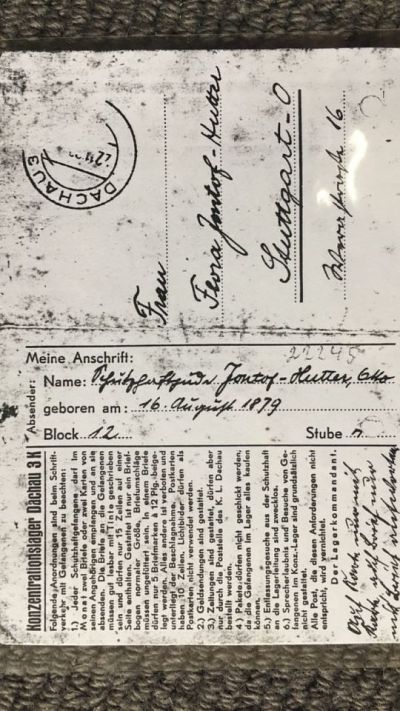 DACHAU 3
Frau
Flora Jontof-Hutter
Stuttgart-O
16
22245
Meine Anschrift:
Absender:
Name: Schutzhaftjude Jontof-Hutter, Otto
geboren am: 16. August 1879
Block 12 Stube
Konzentrationslager Dachau 3 K
Folgende Anordnungen sind beim Schrift-
verkehr mit Gefangenen zu beachten:
1.) Jeder Schutzhaftgefangene darf im
Monat zwei Briefe oder zwei Karten von
seinen Angehörigen empfangen und an sie
absenden. Die Briefe an die Gefangenen
müssen gut lesbar mit Tinte geschrieben
sein und dürfen nur 15 Zeilen auf einer
Seite enthalten. Gestattet ist nur ein Brief-
bogen normaler Größe. Briefumschläge
müssen ungefüttert sein. In einem Briefe
dürfen nur 5 Briefmarken à 12 Pfg. beige-
legt werden. Alles andere ist verboten und
unterliegt der Beschlagnahme. Postkarten
haben 10 Zeilen. Lichtbilder dürfen als
Postkarten nicht verwendet werden.
2.) Geldsendungen sind gestattet.
3.) Zeitungen sind gestattet, dürfen aber
nur durch die Poststelle des K. L. Dachau
bestellt werden.
4.) Pakete dürfen nicht geschickt werden,
da die Gefangenen im Lager alles kaufen
können.
5.) Entlassungsgesuche aus der Schutzhaft
an die Lagerleitung sind zwecklos.
6.) Sprecherlaubnis und Besuche von Ge-
fangenen im Konz.-Lager sind grundsätzlich
nicht gestattet.
Alle Post, die diesen Anforderungen nicht
entspricht, wird vernichtet.
Der Lagerkommandant.